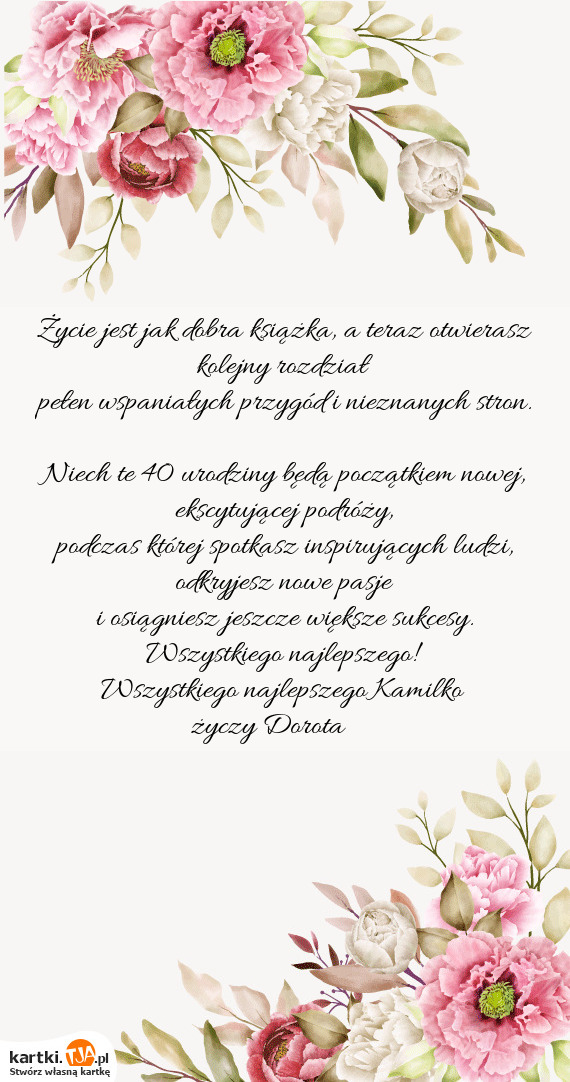 Życie jest jak dobra książka, a teraz otwierasz
kolejny rozdział
pełen wspaniałych przygód i nieznanych stron.
Niech te 40 urodziny będą początkiem nowej,
ekscytującej podróży,
podczas której spotkasz inspirujących ludzi,
odkryjesz nowe pasje
i osiągniesz jeszcze większe sukcesy.
Wszystkiego najlepszego!
Wszystkiego najlepszego Kamilko
życzy Dorota
kartki.TJA.pl
Stwórz własną kartkę